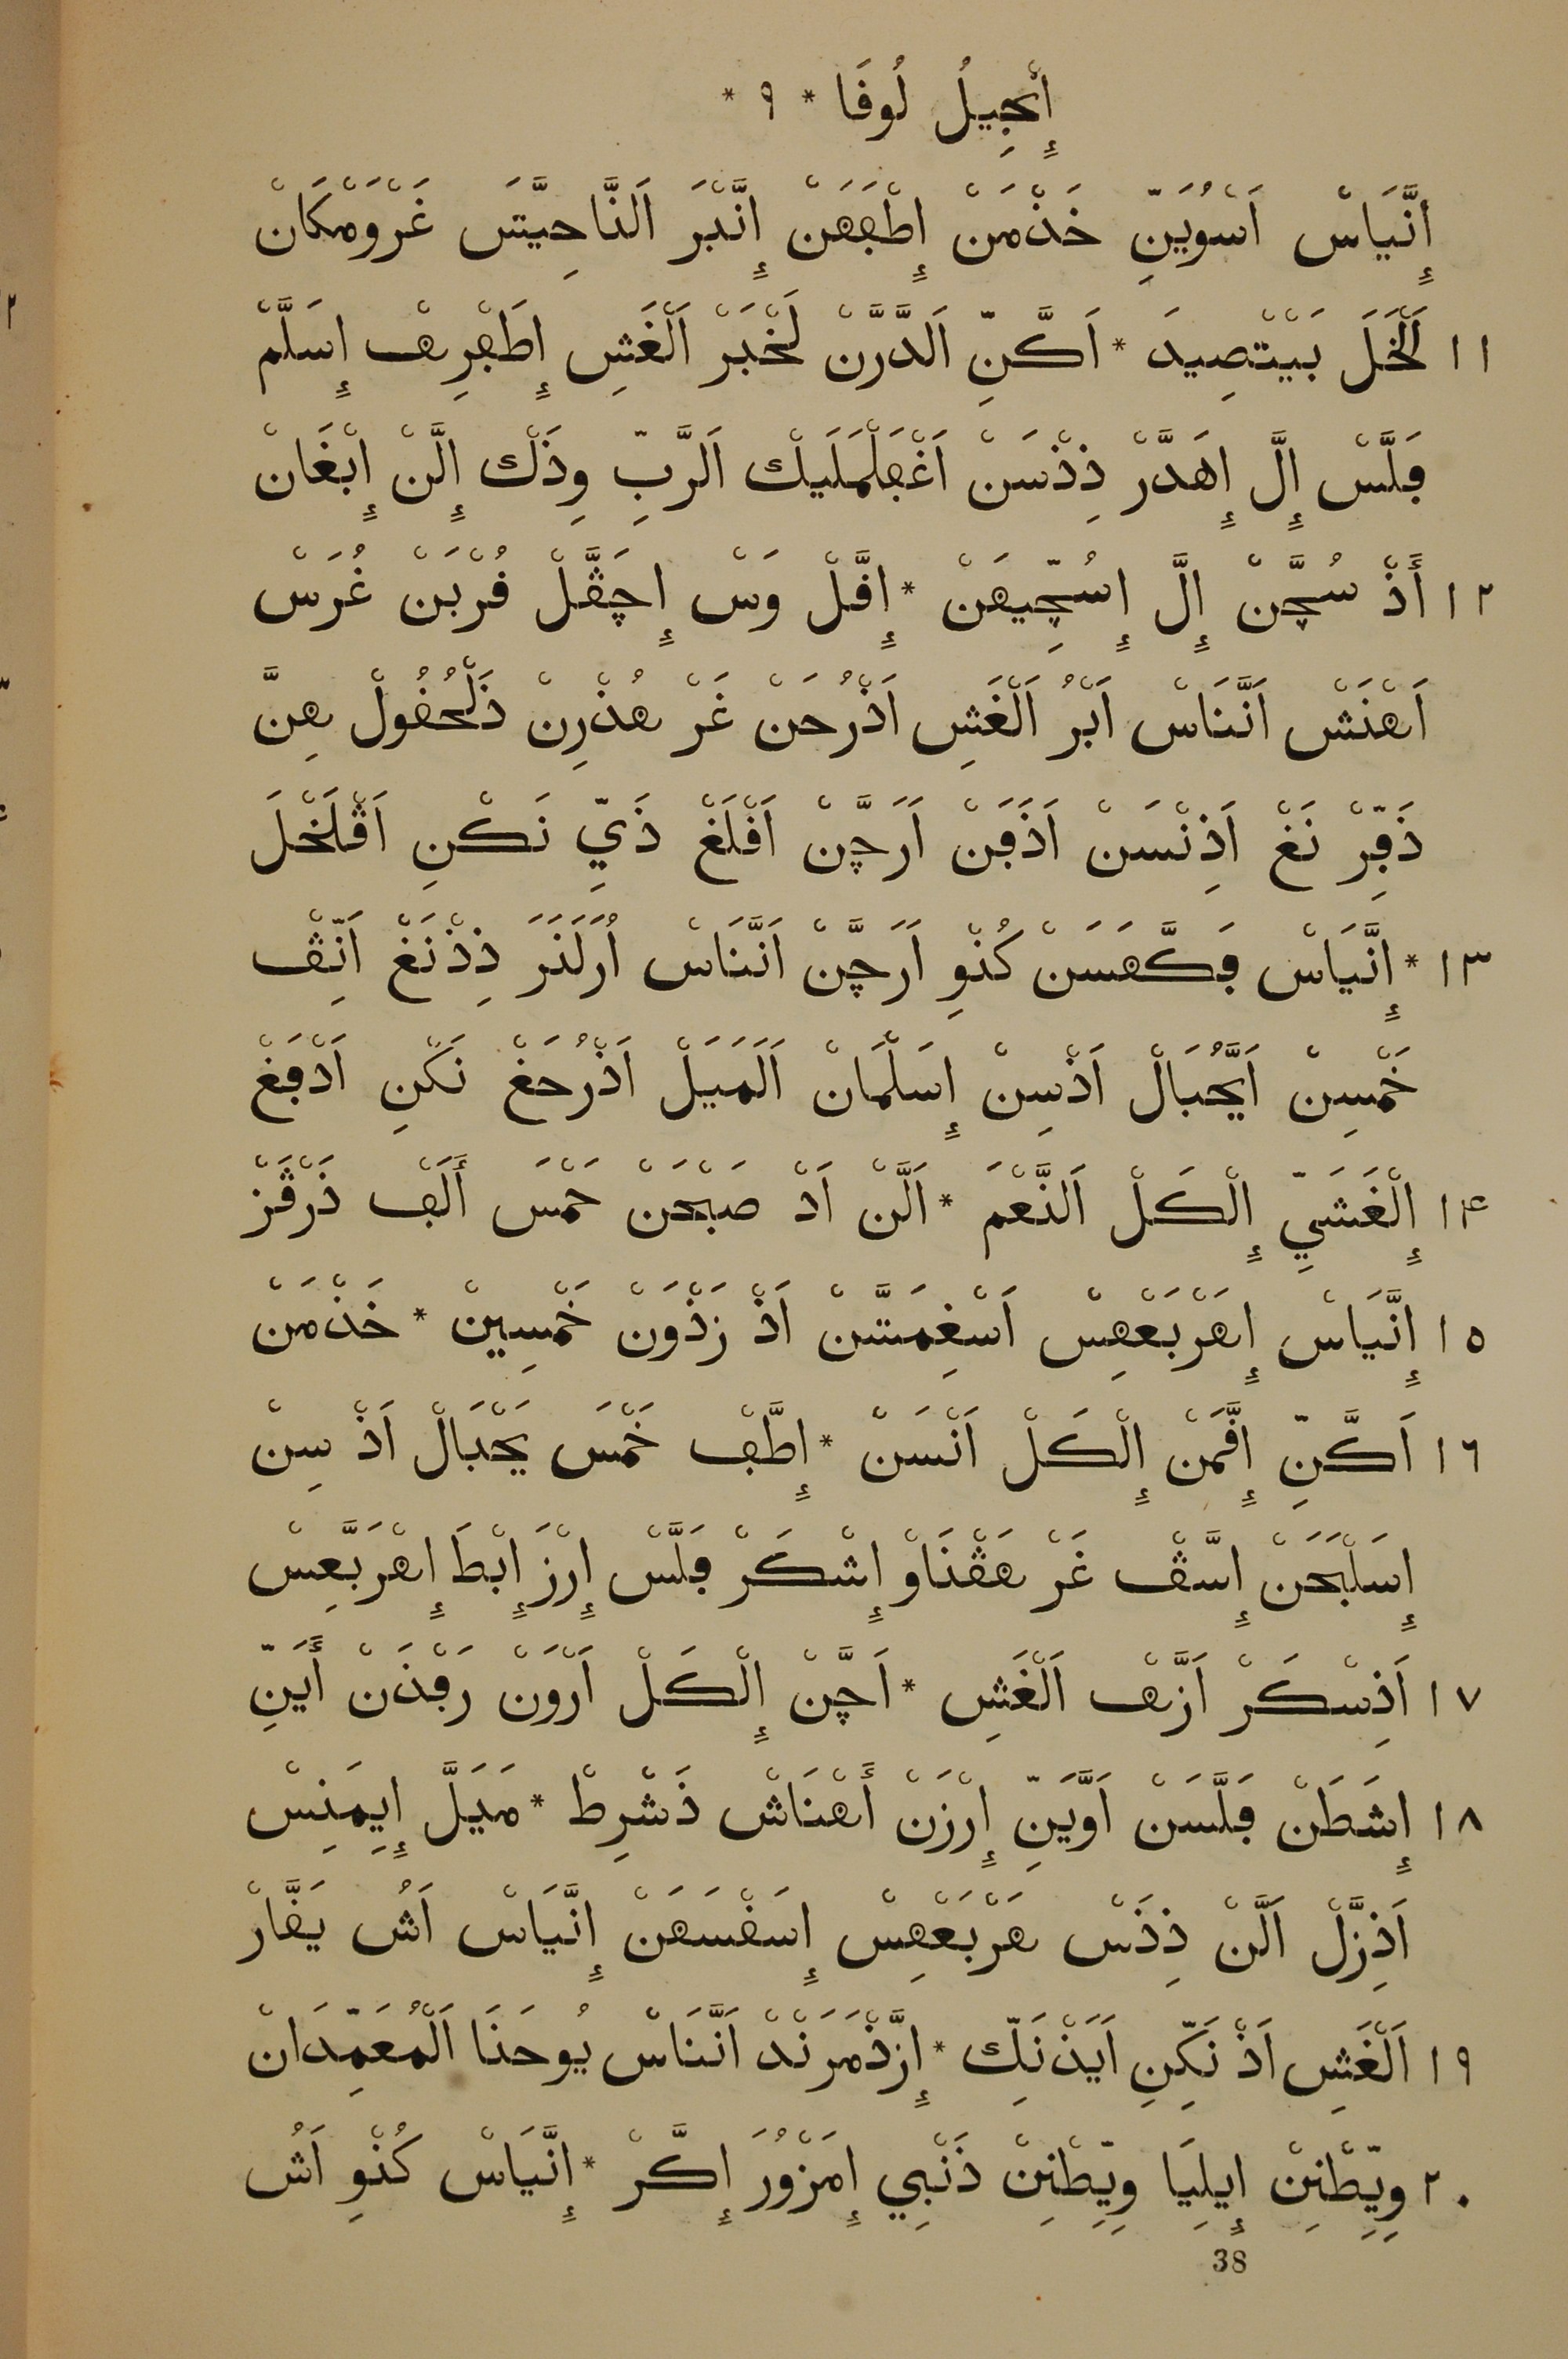 إِٔنْجِيلُ لُوقَا * ٩ *
إِٕنَّيَاسْ اَسْوُيَنِّ خَذْمَنْ إِٕطْڢَهَنْ إِٕنَّدْبَرَ اَلنَّاحِيَّتَس غَرْوَمْكَانْ
١١ اَلْخَلَ بَيْتْصِيدَ * اَكَّنِّ اَلدَّرَّنْ لَخْبَرْ اَلْغَشِ إِٕطَهْرِهْ إِٕسَلَّمْ
ڢَلَّسْ إِٕلَّ إِٕهَدَّرْ ذِذْسَنْ اَغْڢَلْمَلَيْك اَلرَّبِّ وِذَكْ إِلَّنْ إِٕبْغَانْ
١٢ أَذْ سُڃَّنْ إِٕلَّ إِٕسُڃِّيهَنْ * إِٕڧَّلْ وَسْ إِٕچَڨَّلْ ڧُرْبَنْ غُرَسْ
اَهْنَشْ اَنَّنَاسْ اَبْرُ اَلْغَشِ اَذْرُحَنْ غَرْ هُذْرِنْ ذَلْحُڧُولْ هِنَّ
ذَڢِّرْ نَغْ اَذِنْسَنْ اَذَڢَنْ اَرَچَّنْ اَڧْلَغْ ذَيِّ نَكْنِ اَڨْلَخْلَ
١٣ * إِٕنَّيَاسْ ڢَكَّهَسَنْ كُنْوِ اَرَچَّنْ اَنَّنَاسْ اُرَلَنَرَ ذِذْنَغْ اَنِّڨْ
خَمْسِنْ اَيَّحُبَالْ اَذْسِنْ إِٕسَلْمَانْ اَلَمَيَلْ اَذْرُحَغْ نَكْنِ اَدْڢَغْ
١٤ إِٕلْغَشَيِّ إِٕلْكَلْ اَلنَّعْمَ * اَلَّنْ اَذْ صَبْحَنْ خَمْسَ أَلَڢْ ذَرْڨَزْ
١٥ إِٕنَّيَاسْ إِٕهَرْبَعْهِسْ اَسْغِمَثَّنْ اَذْ زَذْوَنْ خَمْسِينْ * خَذْمَنْ
١٦ اَكَّنِّ إِٕڧَّمَنْ إِٕلْكَلْ اَنْسَنْ * إِٕطَّڢْ خَمْسَ يَحْبَالْ اَذْ سِنْ
إِٕسَلْبَحَنْ إِٕسَّڨْ غَرْ هَڨْنَاوْ إِٕشْكَرْ ڢَلَّسْ إِٕرْزَ إِٕبْطَ إِٕهْرَبَّعِسْ
١٧ اَذِسْكَرْ اَزَّهْ اَلْغَشِ * اَچَّنْ إِٕلْكَلْ اَرْوَنْ رَڢْذَنْ أَيَنِّ
١٨ إِٕشَطَنْ ڢَلَّسَنْ اَوَّيَنِّ إِٕرْزَنْ أَهْنَاشْ ذَشْرِطْ * مَيَلَّ إِٕيِمَنِسْ
اَذِزَّلْ اَلَّنْ ذِذَسْ هَرْبَعْهِسْ إِٕسَڧْسَهَنْ إِٕنَّيَاسْ اَشُ يَڧَّارْ
١٩ اَلْغَشِ اَذْ نَكِّنِ اَيَذْنَكِّ * إِٕزَّذْمَرَنْدْ اَنَّنَاسْ يُوحَنَا اَلْمُعَمِّدَانْ
٢٠ وِيِّطْنِنْ إِٕيلِيَا وِيِّطْنِنْ ذَنْبِي إِٕمَزْوُرَ إِٕكَّرْ * إِٕنَّيَاسْ كُنْوِ اَشُ
38